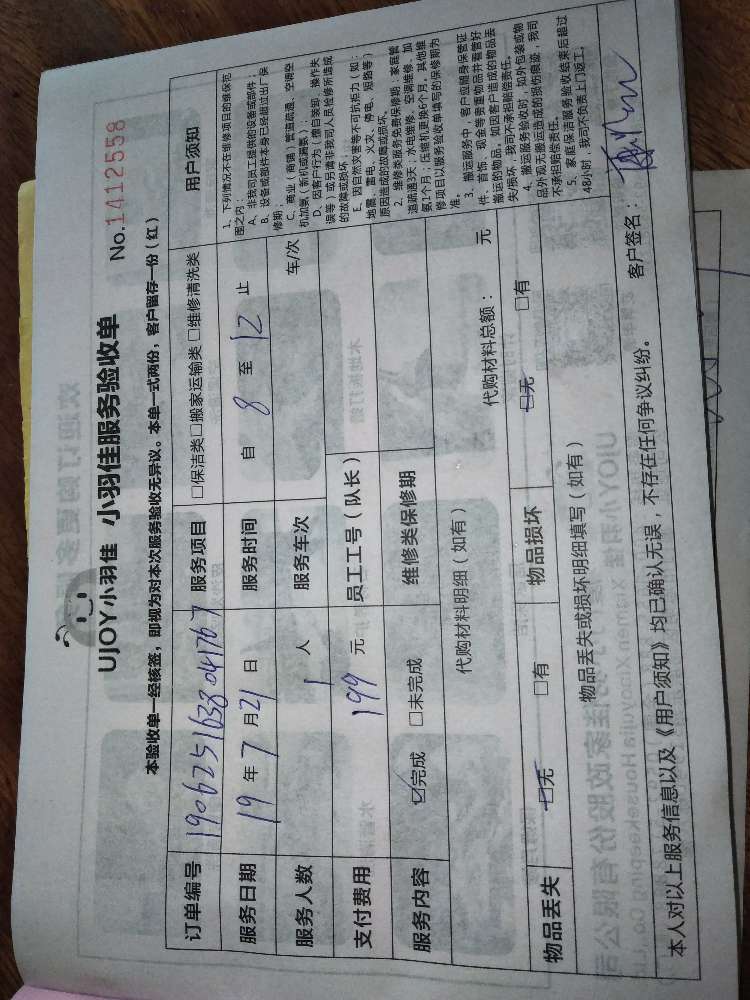 UJOY小羽佳 小羽佳服务验收单 No.1412558
本验收单一经核签，即视为对本次服务验收无异议。本单一式两份，客户留存一份（红）
订单编号 190625163804176 7 服务项目 □保洁类□搬家运输类□维修清洗类
服务日期 19 年 7 月 21 日 服务时间 自 8 至 12 止
服务人数 1 人 服务车次 车/次
支付费用 199 元 员工工号（队长）
服务内容 ☑完成 □未完成 维修类保修期
代购材料明细（如有） 代购材料总额： 元
物品丢失 □无 □有 物品损坏 □无 □有
物品丢失或损坏明细填写（如有）
用户须知
1、下列情况不在维修项目的维保范
围之内：
A、非我司员工提供的设备或部件；
B、设备或部件本身已经超过出厂保
修期；
C、商业（商铺）管道疏通、空调空
机加氨（新机或漏氨）；
D、因客户行为（擅自装卸、操作失
误等）或另请非我司人员检修所造成
的故障或损坏；
E、因自然灾害等不可抗拒力（如：
地震、雷电、火灾、停电、短路等）
原因造成的故障或损坏。
2、维修类服务免费保修期：家庭管
道疏通3天；水电维修、空调维修、加
氨1个月；压缩机更换6个月。其他维
修项目以服务验收单填写的保修期为
准。
3、搬运服务中，客户应随身保管证
件、首饰、现金等贵重物品并看管好
搬运的物品。如因客户造成的物品丢
失/损坏，我司不承担赔偿责任。
4、搬运服务验收时，如外包装或物
品外观无搬运造成的损伤痕迹，我司
不承担赔偿责任。
5、家庭保洁服务验收结束后超过
48小时，我司不负责上门返工。
本人对以上服务信息以及《用户须知》均已确认无误，不存在任何争议纠纷。 客户签名：